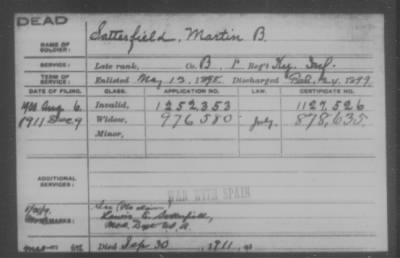 DEAD
NAME OF SOLDIER: Satterfield, Martin B.
SERVICE: Late rank, Co. B, 1 Reg't Ky. Inf.
TERM OF SERVICE: Enlisted May 13, 1898. Discharged Feb. 24, 1899.
DATE OF FILING. CLASS. APPLICATION NO. LAW. CERTIFICATE NO.
Aug 6. Invalid, 1252353 1127526
1911 Dec 9 Widow, 976580 878,635.
Minor,
ADDITIONAL SERVICES:
WAR WITH SPAIN
REMARKS:
Died Sep 30, 1911, at